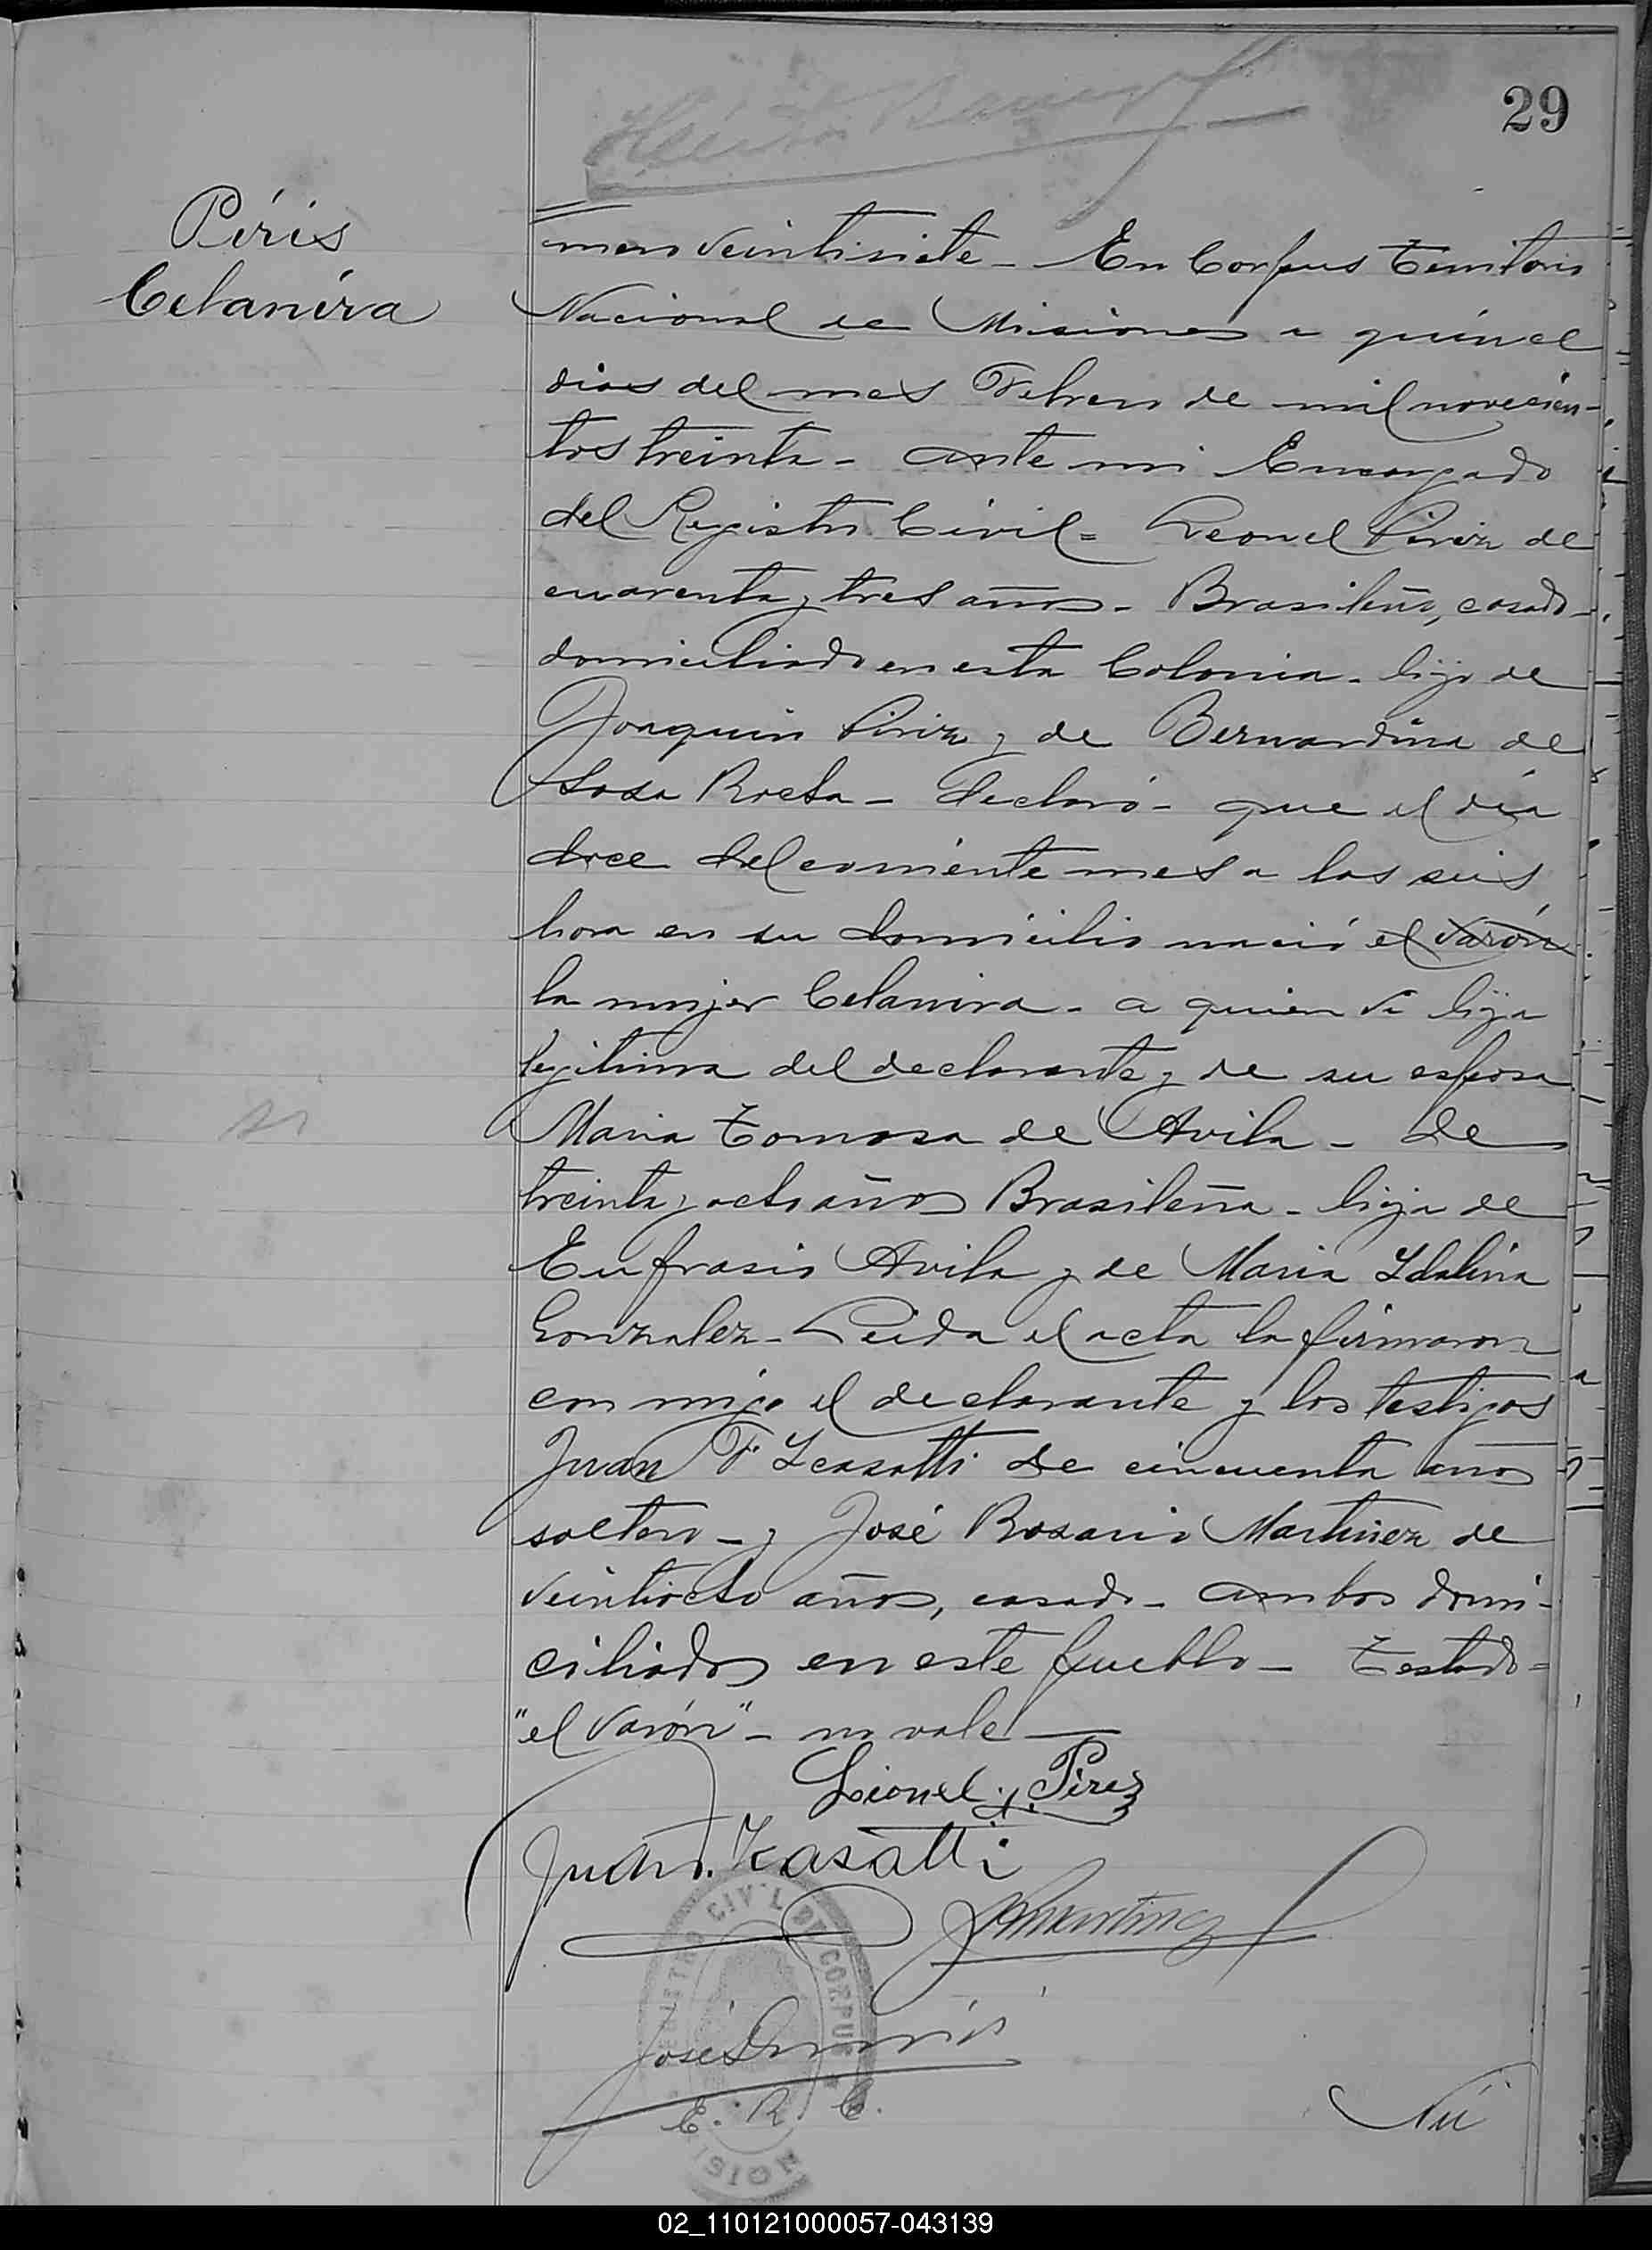 29
Péris
Celanira
mero veintisiete - En Corpus Territorio
Nacional de Misiones a quince
dias del mes Febrero de mil novecien-
tos treinta - ante mi Encargado
del Registro Civil = Leonel Piriz de
cuarenta y tres años - Brasileño, casado -
domiciliado en esta Colonia - hijo de
Joaquin Piriz y de Bernardina de
Sosa Rocha - declaró - que el día
doce del corriente mes a las seis
hora en su domicilio nació el varón
la mujer Celanira - a quien vi hija
legitima del declarante y de su esposa
Maria Tomasa de Avila - de
treinta y ocho años Brasileña - hija de
Eufrasio Avila y de Maria Ydalina
Gonzalez - Leida el acta la firmaron
con migo el declarante y los testigos
Juan F. Zcasatti de cincuenta años
soltero - y José Rosario Martinez de
veintiocho años, casado - ambos domi-
ciliados en este pueblo - Testado =
"el varón" - no vale
Lionel Pirez
Juan F. Zcasatti
JRMartinez
REGISTRO CIVIL DE CORPUS
José
E. R. C.
MISIONES
Nú
02_110121000057-043139